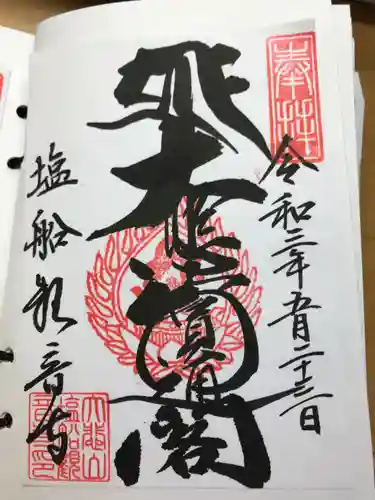 奉拝
令和三年五月二十三日
大悲圓通閣
塩船観音寺
大悲山
塩船観
音寺印